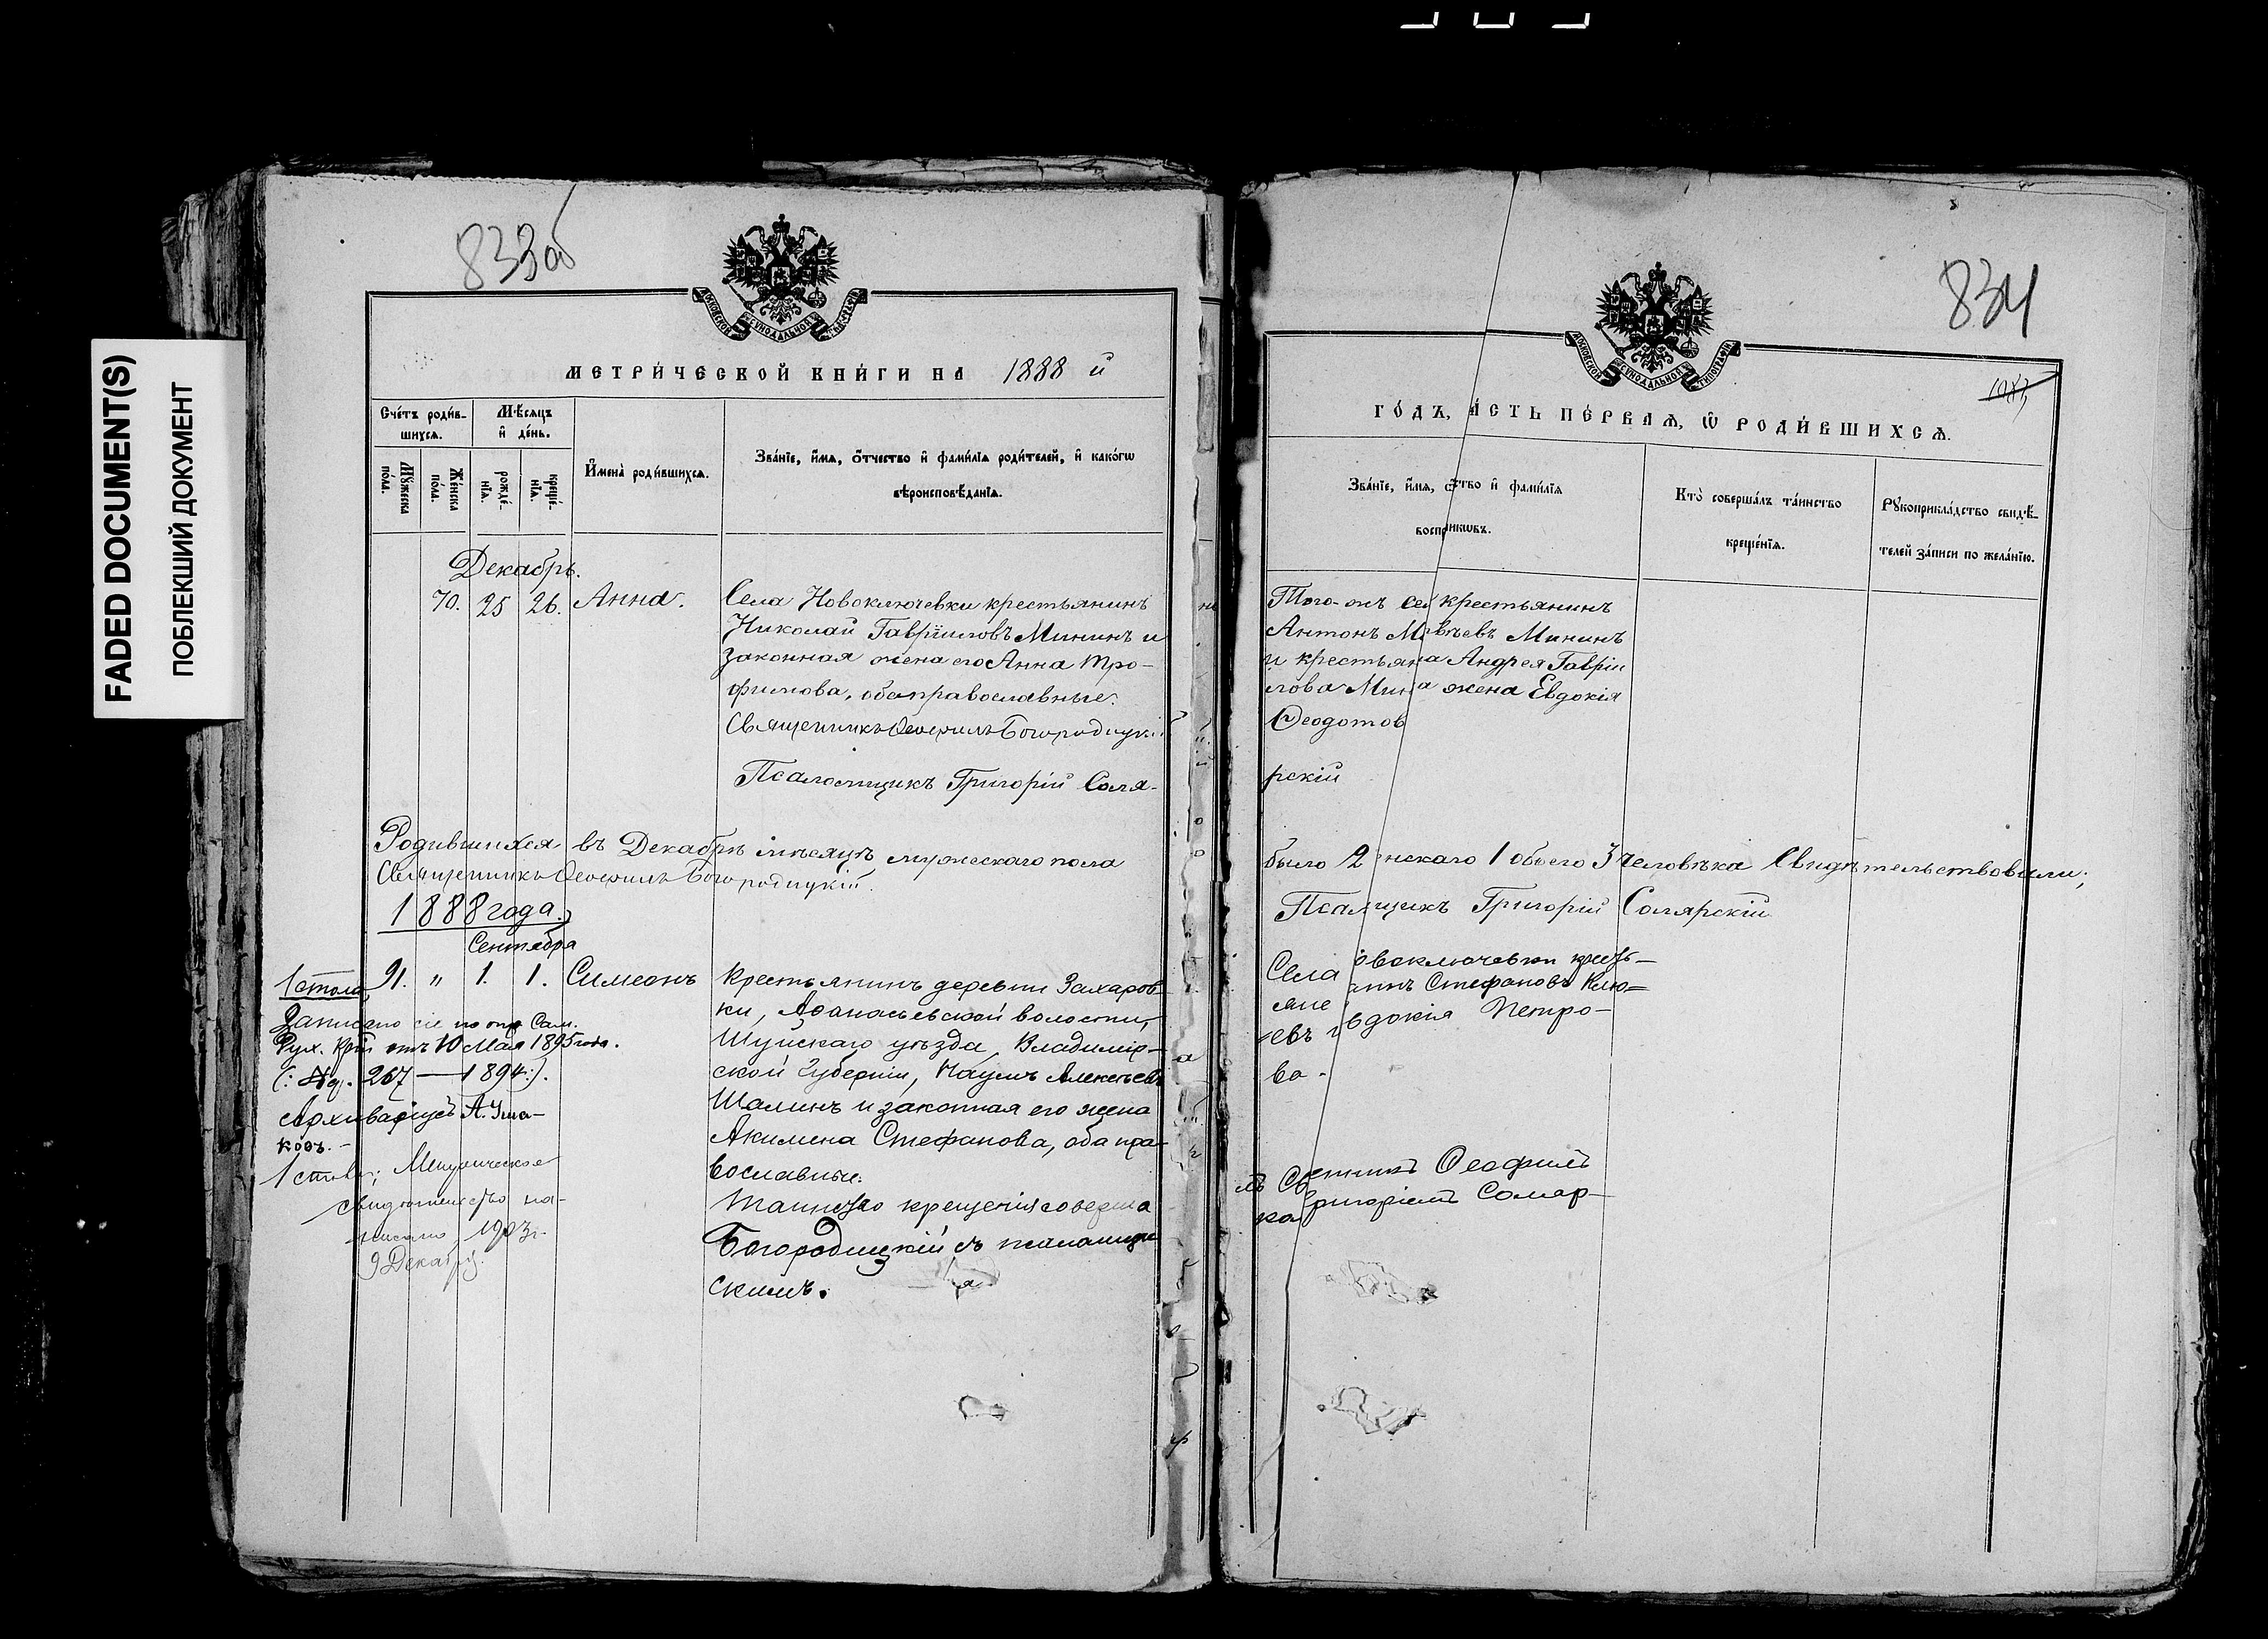 FADED DOCUMENT(S)
ПОБЛЕКШИЙ ДОКУМЕНТ
833об
МОСКОВСКОЙ СѴНОДАЛЬНОЙ
МЕТРИ́ЧЕСКОЙ КНИ́ГИ НА 1888 й
Сче́тъ роди́в-
шихсѧ.
Мѣ́сѧцъ
и҆ де́нь.
Мꙋ́жеска
по́ла.
Же́нска
по́ла.
рожде́-
нїѧ.
креще́-
нїѧ.
И҆мена̀ роди́вшихсѧ.
Зва́нїе, и҆́мѧ, ѻ҆́тчество и҆ фамѝлїѧ роди́телей, и҆ како́гѡ
вѣроисповѣ́данїѧ.
Декабрь.
70. 25 26. Анна.
Села Новоключевки крестьянинъ
Николай Гавріиловъ Мининъ и
законная жена его Анна Тро-
фимова, оба православные.
Священникъ Ѳеофилъ Богородицкій
Псаломщикъ Григорій Соля-
Родившихся въ Декабрѣ мѣсяцѣ мужескаго пола
Священникъ Ѳеофилъ Богородицкій.
1888 года.
Сентября
91. " 1. 1. Симеонъ
Крестьянинъ деревни Захаров-
ки, Аѳанасьевской волости,
Шуйскаго уѣзда, Владимір-
ской Губерніи, Наумъ Алексѣевъ
Шалинъ и законная его жена
Акилина Стефанова, оба пра-
вославные.
Таинство крещенія соверша
Богородицкій съ псаломщи
скимъ.
1 стола
Записано сіе по опр. Сам.
Дух. Кон. отъ 10 Мая 1895 года.
(: 267 — 1894:).
Архиваріусъ А. Уша-
ковъ.-
1 стола; Метрическое
свидѣтельство на-
писано 1903 г.
9 Декабря.
834
МОСКОВСКОЙ СѴНОДАЛЬНОЙ ТИПОГРАФІИ
ГО́ДЪ, ЧА́СТЬ ПЕ́РВАѦ, Ѽ РОДИ́ВШИХСѦ.
Зва́нїе, и҆́мѧ, ство и҆ фамѝлїѧ
восприкѡвъ.
Кто̀ соверша́лъ та́инство
креще́нїѧ.
Рꙋкоприкла́дство свидѣ́-
телей за́писи по жела́нїю.
Того-жъ се крестьянинъ
Антонъ Матвѣевъ Мининъ
и крестьянина Андрея Гаврiи
лова Минина жена Евдокія
Ѳеодотов
рскій
было 2 нскаго 1 обоего 3 человѣка Свидѣтельствовали;
Псалмщикъ Григорій Солярскій
Села овоключевки кресть-
яне Стефановъ Клю-
евъ и вдокія Петро-
ва.
лъ Св енникъ Ѳеофилъ
ко ригоріемъ Соляр-